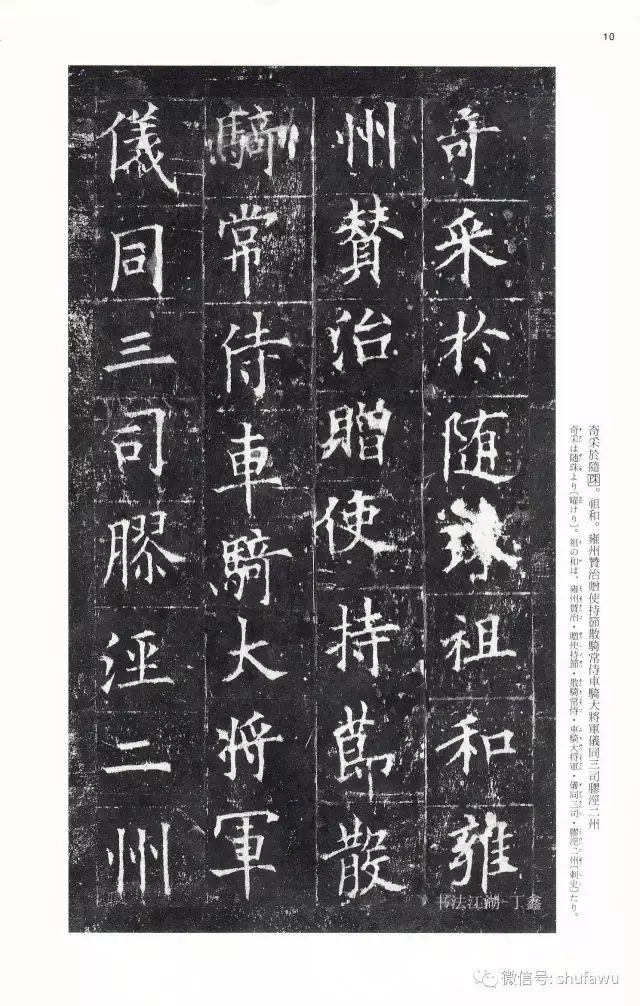 10
奇采於随珠祖和雍
州賛治贈使持節散
騎常侍車騎大将軍
儀同三司膠涇二州
奇采於隨珠。祖和。雍州贊治贈使持節散騎常侍車騎大將軍儀同三司膠涇二州
奇采は隨珠より〔曜けり〕。祖の和は、雍州贊治・贈使持節・散騎常侍・車騎大将軍・儀同三司・膠涇二州〔刺史〕たり。
书法江湖-丁鑫
微信号: shufawu